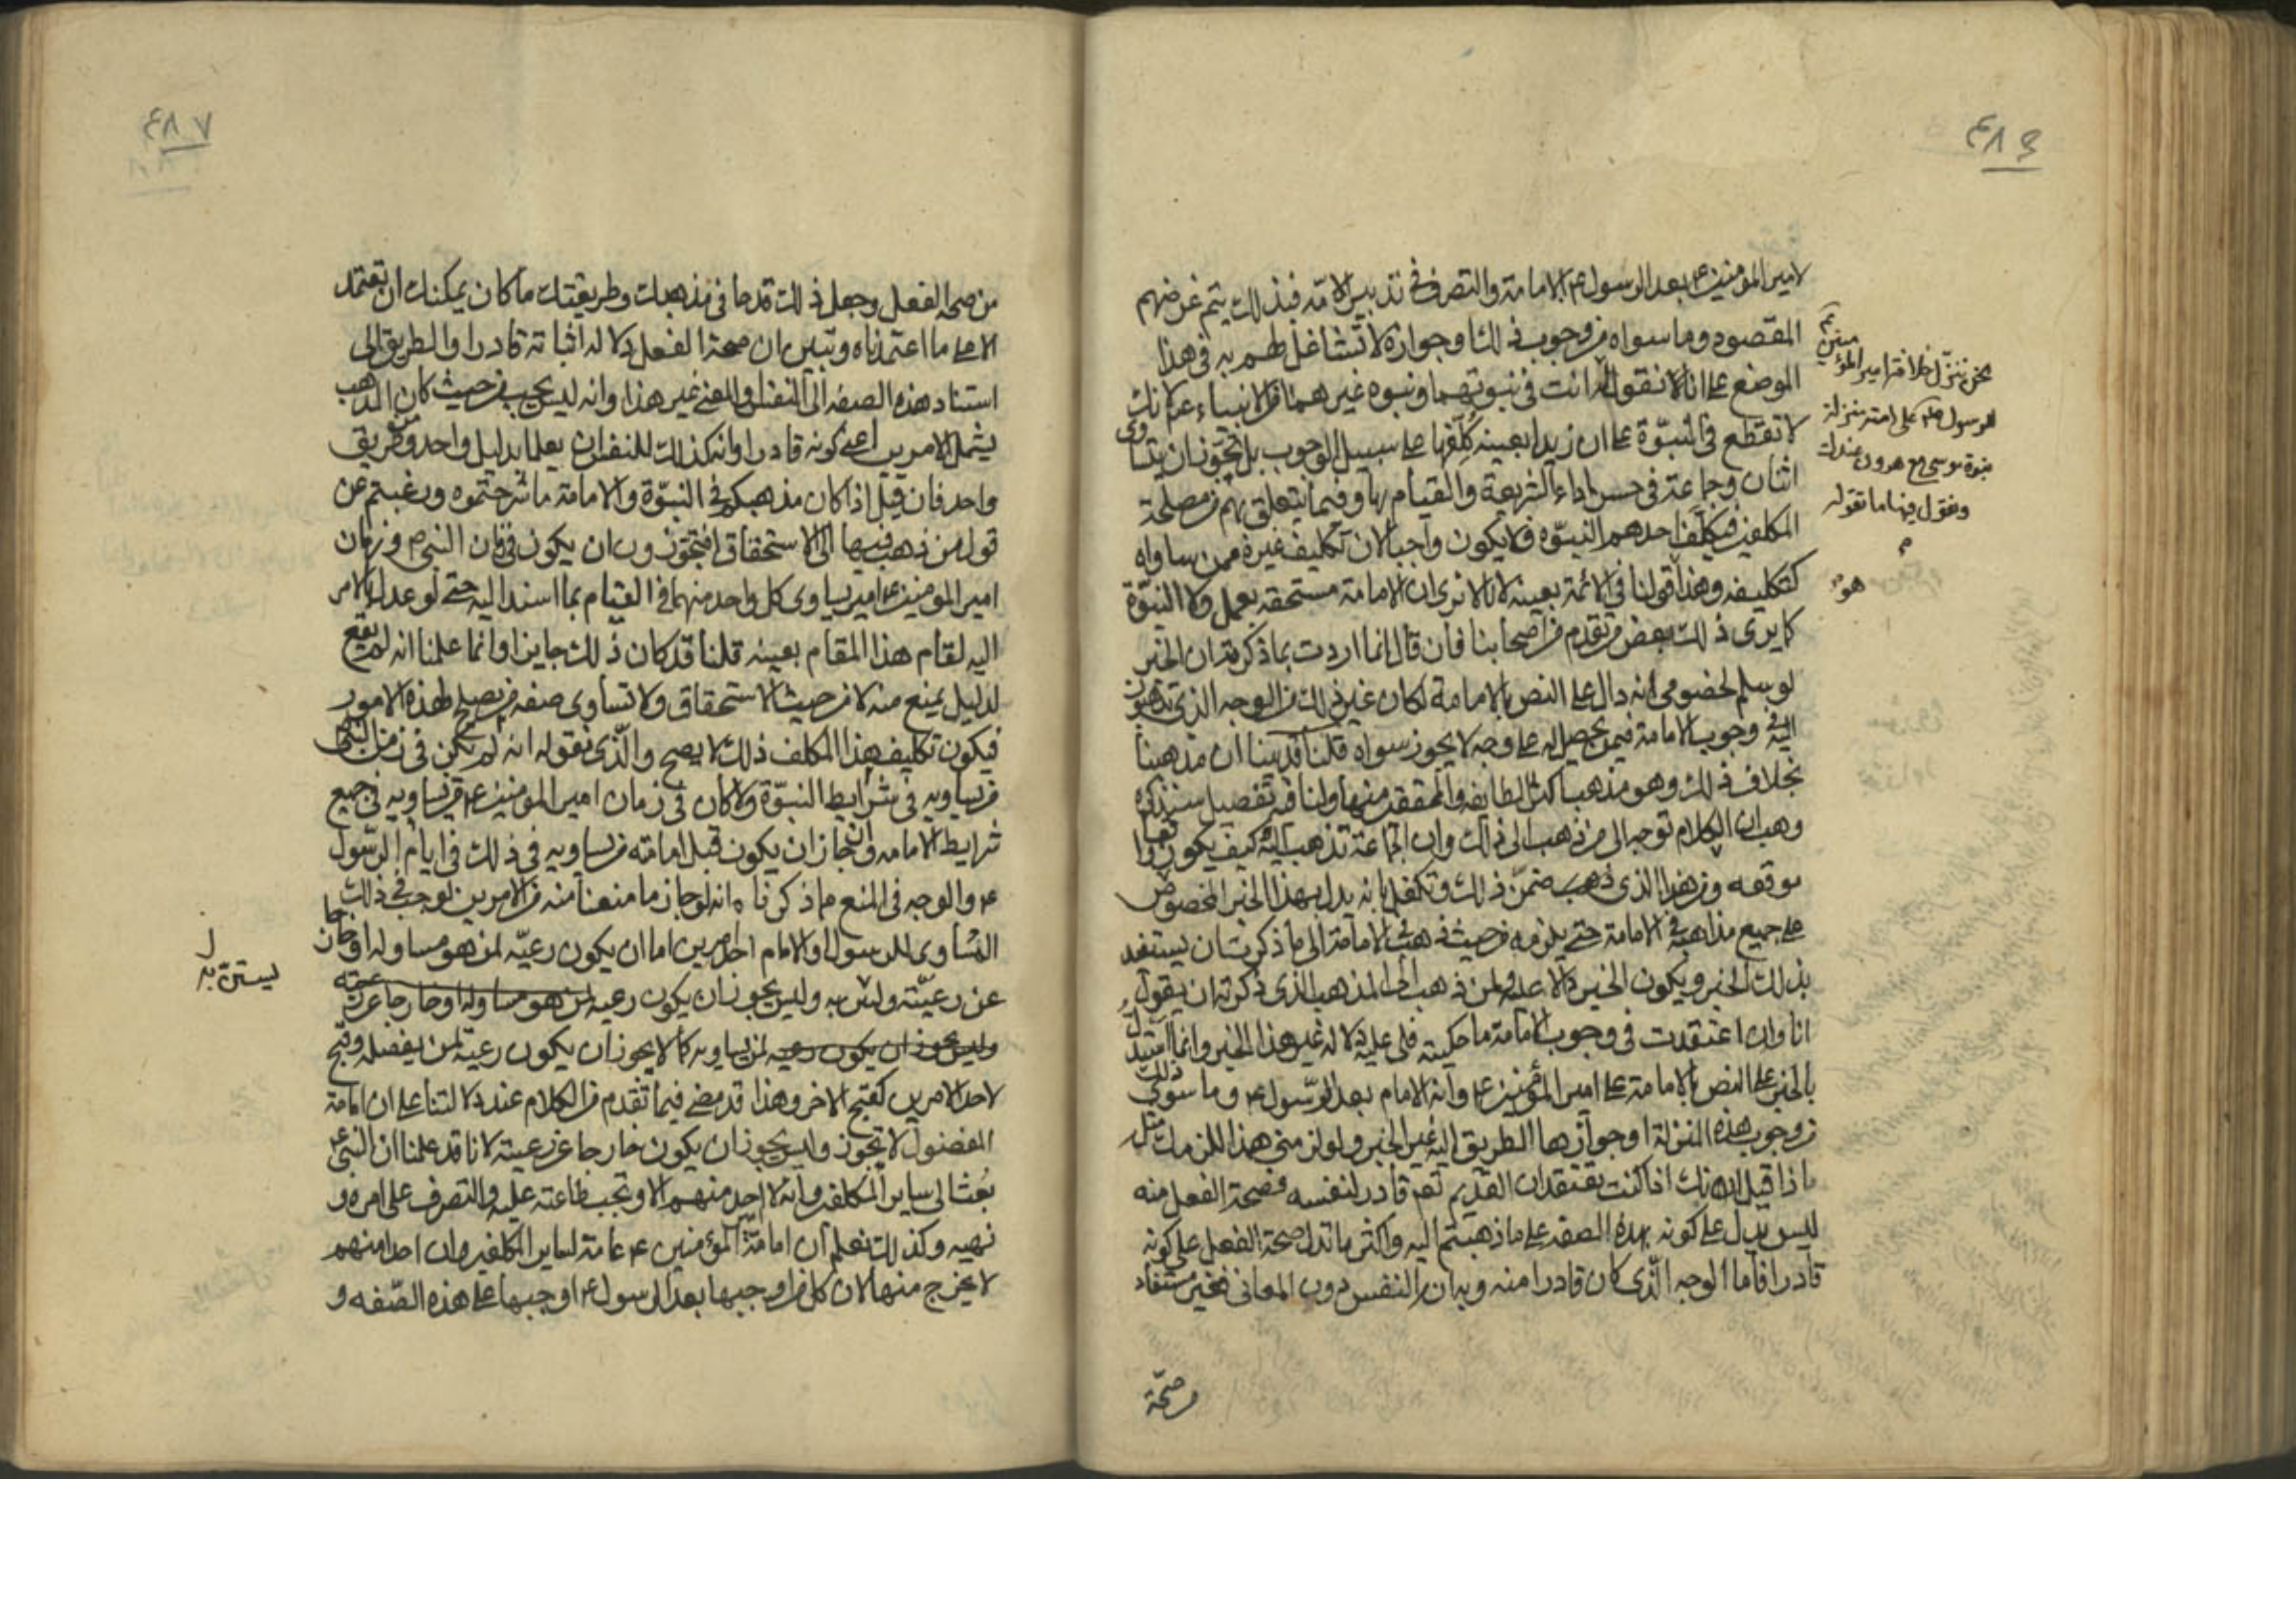 ٤٨٦
لامير المؤمنين ع بعد الرسول ع بالامامة والتصرف في تدبير الامّة فبذلك يتم غرضهم
المقصود وما سواه من وجوب ذلك او جوازه لا تشاغل لهم به في هذا
الموضع على انا لا نقول لك انت في نبوتهما ونبوه غيرهما من الانبياء ع لانك
لا تقطع في النبوّة على ان زيدا بعينه كلّفها على سبيل الوجوب بل تجوّز ان يتساوى
اثنان وجماعة في حسن اداء الشريعة والقيام بها وفيما يتعلق بهم من مصلحة
المكلفين فيكلّف احدهم النبوّه فلا يكون واجبا لان تكليف غيره ممن ساواه
كتكليفه وهذا قولنا في الائمة بعينه لانا لا نرى ان الامامة مستحقه بعمل ولا النبوّة
كما يرى ذلك بعض من تقدم من اصحابنا فان قال انما اردت بما ذكرته ان الخبر
لو سلم لخصومي انه دال على النص بالامامة لكان غير ذلك من الوجه الذي تذهبون
اليه في وجوب الامامة فيمن يحصل له على وجه لا يجوز سواه قلنا قد بينا ان مذهبنا
بخلاف ذلك وهو مذهب اكثر الطايفه والمحققين منها ولنا فيه تفصيل سنذكره
وهب ان الكلام توجه الى من ذهب الى ذلك وان الجماعة تذهب اليه كيف يكون واقعا
موقعه ومن هذا الذي ذهب ضمّن ذلك وتكفل بانه يدل بهذا الخبر المخصوص
على جميع مذاهبه في الامامة حتى يلزمه من حيث ذهب في الامامة الى ما ذكرت ان يستفيد
بذلك الخبر ويكون الخبر دالا عليه ولمن ذهب الى المذهب الذي ذكرته ان يقول
انا وان اعتقدت في وجوب الامامة ما حكيته فلي عليه دلالة غير هذا الخبر وانما استدل
بالخبر على النص بالامامة على امير المؤمنين ع وانه الامام بعد الرسول ع وما سوى ذلك
من وجوب هذه المنزلة او جوازها الطريق اليه غير الخبر ولو لزمني هذا للزمك مثل
ما ذا قيل لك انك اذا كنت تعتقد ان القديم تعم قادر لنفسه فصحة الفعل منه
ليس يدل على كونه بهذه الصفه على ما ذهبتم اليه واكثر ما تدل صحة الفعل على كونه
قادرا فاما الوجه الّذي كان قادرا منه وبه ان النفس دون المعاني فغير مستفاد
من صحّة
نحن ننزّل خلافة امير المؤمنين ع
للرسول صلم على امته منزلة
نبوة موسى مع هرون عندك
ونقول فيها ما تقوله
م
هو
٤٨٧
من صحه الفعل وجعل ذلك قدحا في مذهبك وطريقتك ما كان يمكنك ان تعتمد
الا على ما اعتمدناه وتبين ان صحة الفعل دلالة اثباته قادرا والطريق الى
استناد هذه الصفه الى النفس او المعنى غير هذا وانه ليس يجب من حيث كان المذهب
يشمل الامرين اعنى كونه قادرا وانه كذلك للنفس ان يعلما بدليل واحد ومن طريق
واحد فان قيل اذا كان مذهبكم في النبوّة والامامة ما شرحتموه ورغبتم عن
قول من ذهب فيها الى الاستحقاق افتجوّزون ان يكون في زمان النبي ص وزمان
امير المومنين ع امير يساوى كل واحد منهما في القيام بما اسند اليه حتى لو عدل بالامر
اليه لقام هذا المقام بعينه قلنا قد كان ذلك جايزا وانما علمنا انه لم يقع
لدليل يمنع منه لا من حيث الاستحقاق ولا تساوى صفه من يصلح لهذه الامور
فيكون تكليف هذا المكلف ذلك لا يصح والّذي نقوله انه لم يكن في زمن النبي
من يساويه في شرايط النبوّة ولا كان في زمان امير المومنين ع من يساويه في جميع
شرايط الامامه وان جاز ان يكون قبل امامته من يساويه في ذلك في ايام الرّسول
ع والوجه في المنع مما ذكرناه انه لو جاز ما منعنا منه من الامرين لوجب في ذلك
المساوى للرسول او الامام احد امرين اما ان يكون رعيّه لمن هو مساو له او خارجا
عن رعيّته وليس يجوز ان يكون رعيه لمن هو مساو له او خارجا عن رعيته
وليس يجوز ان يكون رعيه لمن يساويه كما لا يجوز ان يكون رعية لمن يفضله وقبح
لاحد الامرين كقبح الاخر وهذا قد مضى فيما تقدم من الكلام عند دلالتنا على ان امامة
المفضول لا تجوز وليس يجوز ان يكون خارجا عن رعيته لانا قد علمنا ان النبي ع
بُعث الى ساير المكلفين وانه لا احد منهم الا وتجب طاعته عليه والتصرف على امره و
نهيه وكذلك نعلم ان امامة امير المؤمنين ع عامة لساير المكلفين وان احدا منهم
لا يخرج منها لان كل من اوجبها بعد الرسول ع اوجبها على هذه الصّفه و